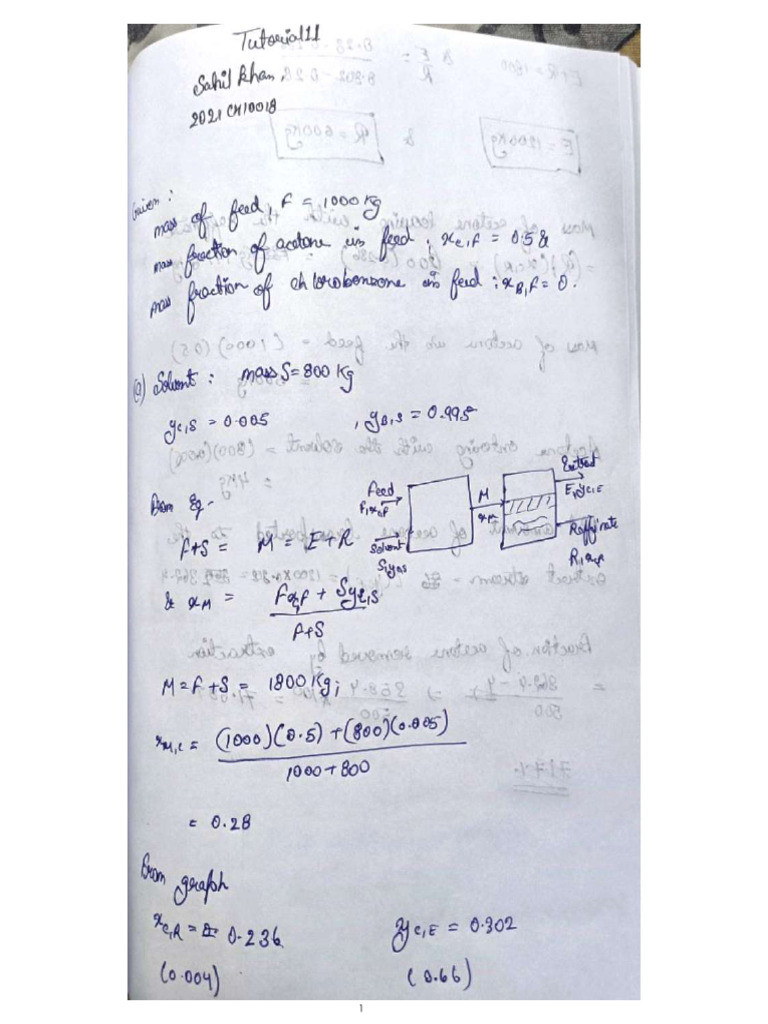 Tutorial 11
Sahil Khan,
2021CH10018
Given:
mass of feed, F = 1000 Kg
mass fraction of acetone in feed, xc,F = 0.5 &
mass fraction of chlorobenzene in feed : xB,F = 0.
(a) Solvent: mass S = 800 Kg
yc,S = 0.005 , yB,S = 0.995
From Eq-
Feed
F, xc,F
Solvent
S, yc,s
M
xM
Extract
E, yc,E
Raffinate
R, xc,R
F+S = M = E+R
& xM = Fxc,F + Syc,S
F+S
M = F+S = 1800 Kg;
xM,c = (1000)(0.5) + (800)(0.005)
1000+800
= 0.28
From graph
xc,R = 0.236 yc,E = 0.302
(0.004) (0.66)
1